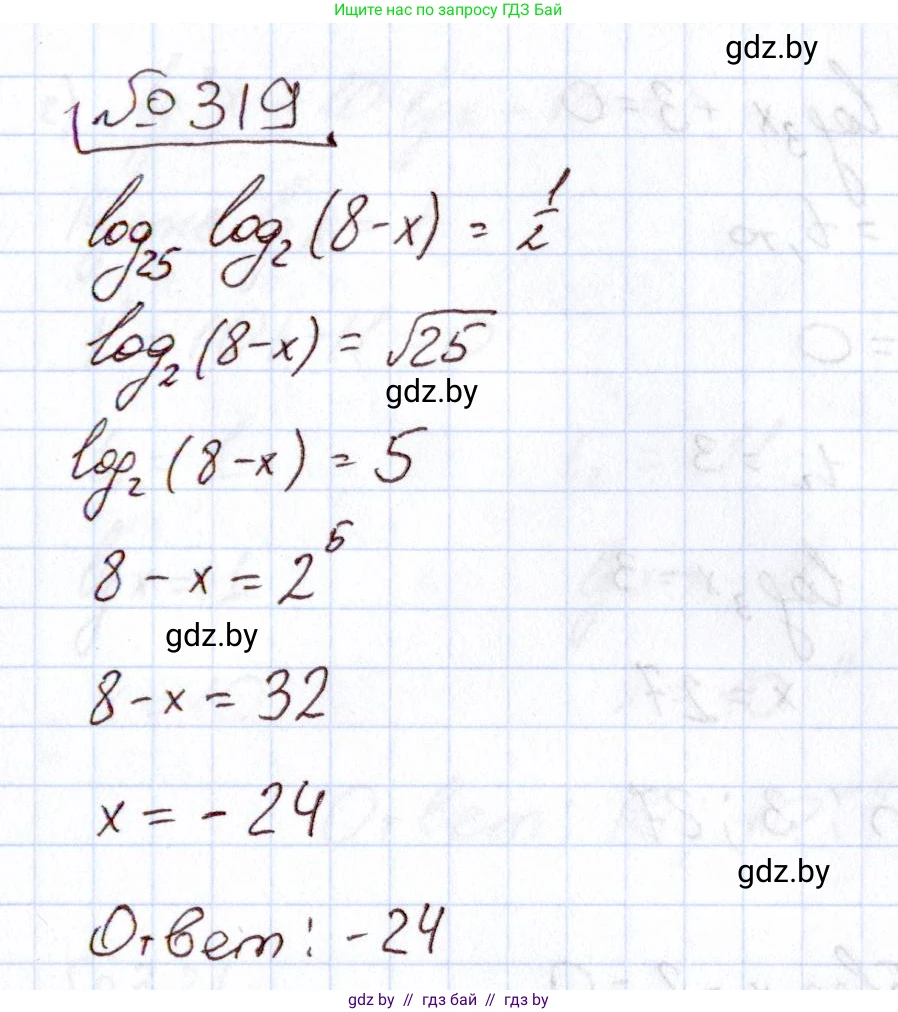 Ищите нас по запросу ГДЗ Бай
gdz.by
№319
log₂₅ log₂ (8-x) = 1/2
log₂ (8-x) = √25
gdz.by
log₂ (8-x) = 5
8 - x = 2⁵
gdz.by
8 - x = 32
x = - 24
gdz.by
Ответ: -24
gdz.by // гдз бай // гдз by